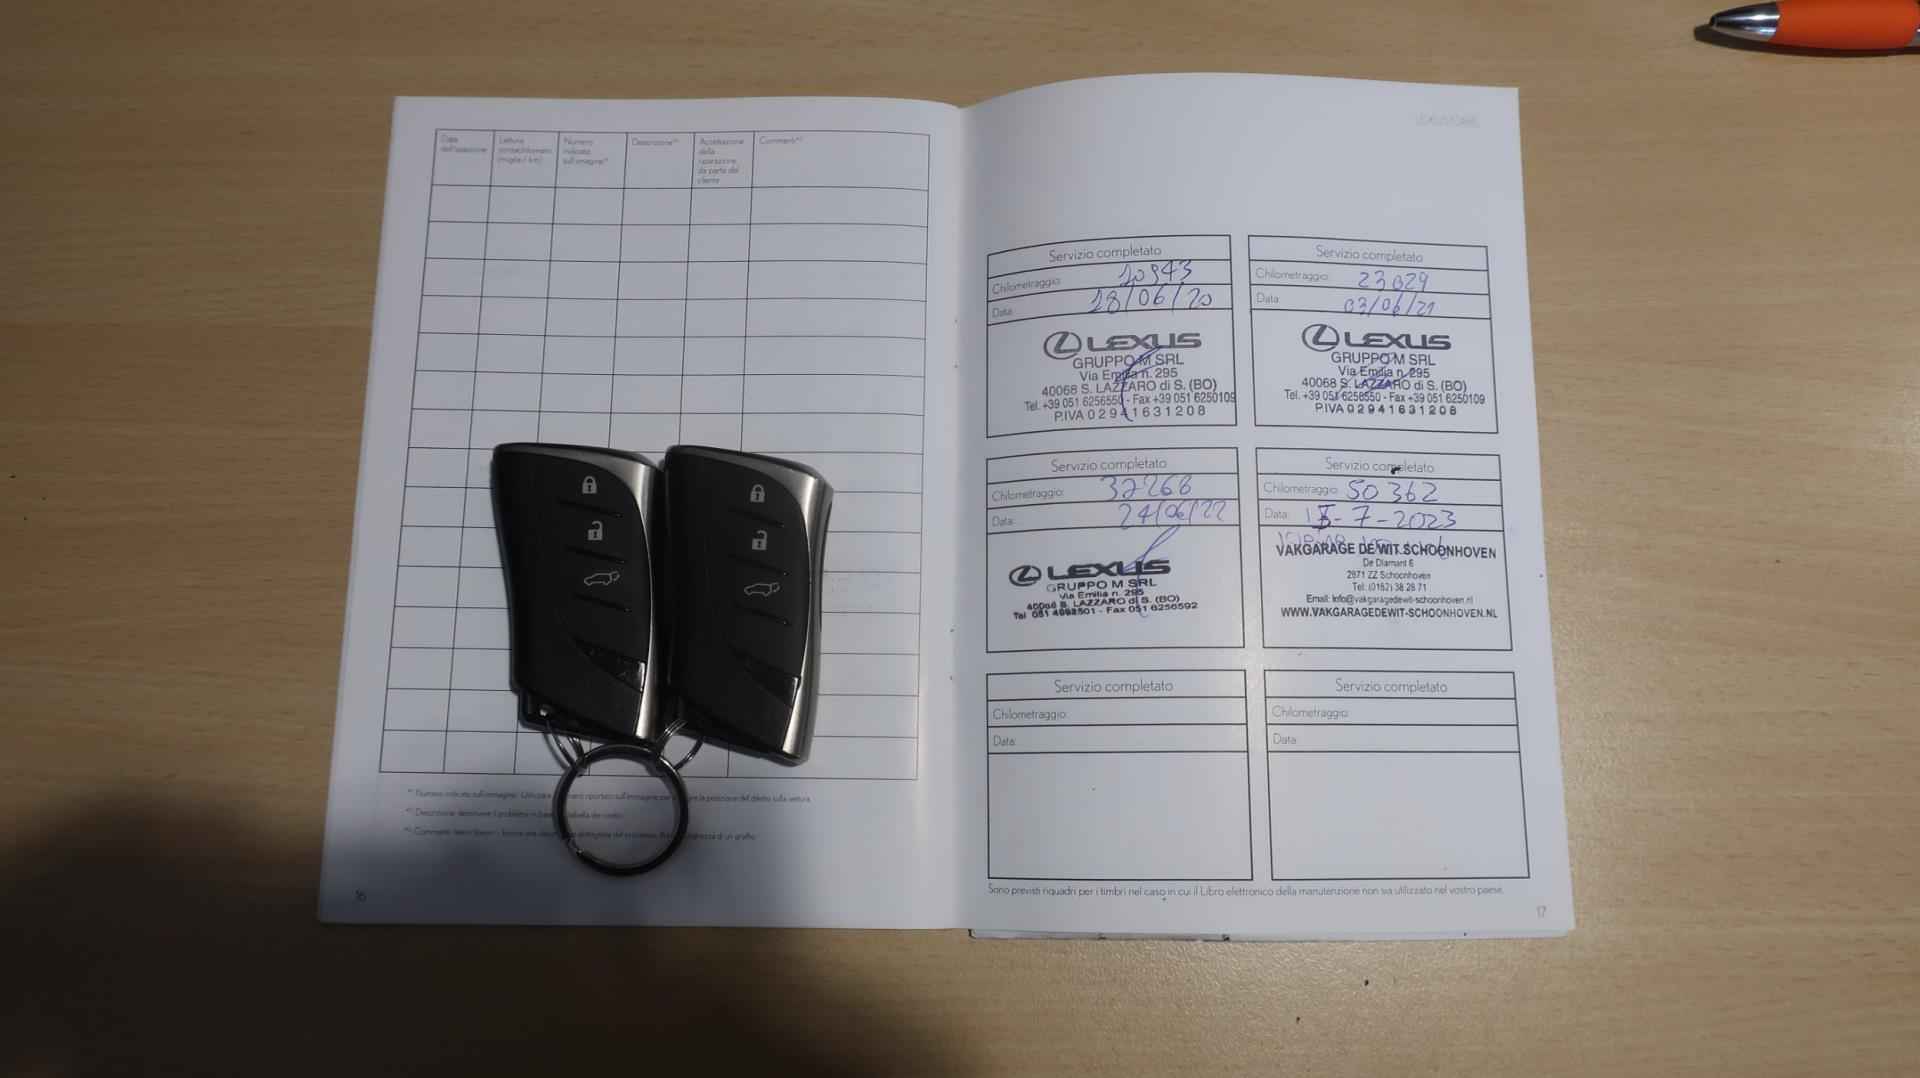 Data
dell'ispezione
Lettura
contachilometri
(miglia / km)
Numero
indicato
sull'immagine*¹
Descrizione*²
Accettazione
della
riparazione
da parte del
cliente
Commenti*³
16
Servizio completato
Chilometraggio: 10943
Data: 18/06/20
LEXUS
GRUPPO M SRL
Via Emilia n. 295
40068 S. LAZZARO di S. (BO)
Tel. +39 051 6256550 - Fax +39 051 6250109
P.IVA 02941631208
Servizio completato
Chilometraggio: 23029
Data: 03/06/21
LEXUS
GRUPPO M SRL
Via Emilia n. 295
40068 S. LAZZARO di S. (BO)
Tel. +39 051 6256550 - Fax +39 051 6250109
P.IVA 02941631208
Servizio completato
Chilometraggio: 37268
Data: 24/06/22
LEXUS
GRUPPO M SRL
Via Emilia n. 295
40068 S. LAZZARO di S. (BO)
Servizio completato
Chilometraggio: 50362
Data: -7-2023
VAKGARAGE DE WIT SCHOONHOVEN
De Diamant 6
2871 ZZ Schoonhoven
Tel: (0182) 38 28 71
Email: info@vakgaragedewit-schoonhoven.nl
WWW.VAKGARAGEDEWIT-SCHOONHOVEN.NL
Servizio completato
Chilometraggio:
Data:
Servizio completato
Chilometraggio:
Data:
Sono previsti riquadri per i timbri nel caso in cui il Libro elettronico della manutenzione non sia utilizzato nel vostro paese.
17